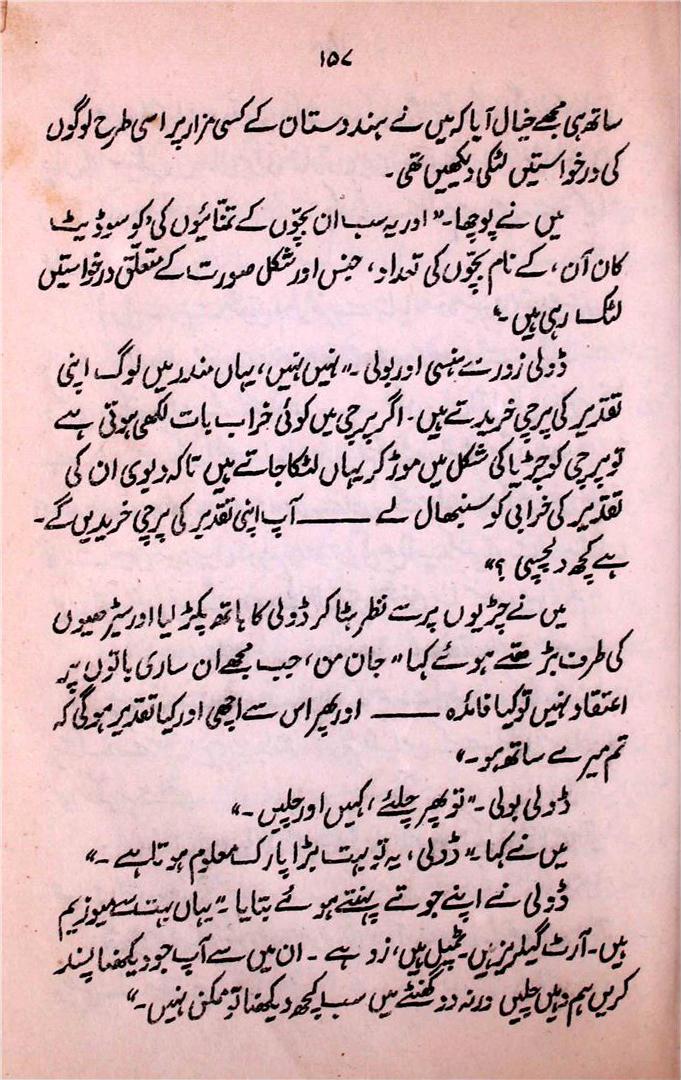 ۱۵۷
ساتھ ہی مجھے خیال آیا کہ میں نے ہندوستان کے کسی مزار پر اسی طرح لوگوں
کی درخواستیں لٹکی دیکھیں تھی۔
میں نے پوچھا۔ "اور یہ سب ان بچّوں کے تمنّائیوں کی، کو سوڈیٹ
کان آن، کے نام بچّوں کی تعداد، جنس اور شکل صورت کے متعلّق درخواستیں
لٹکا رہی ہیں۔"
ڈولی زور سے ہنسی اور بولی۔ "نہیں نہیں، یہاں مندر میں لوگ اپنی
تقدیر کی پرچی خریدتے ہیں۔ اگر پرچی میں کوئی خراب بات لکھی ہوتی ہے
تو پرچی کو چڑیا کی شکل میں موڑ کر یہاں لٹکا جاتے ہیں تاکہ دیوی ان کی
تقدیر کی خرابی کو سنبھال لے —— آپ اپنی تقدیر کی پرچی خریدیں گے۔
ہے کچھ دلچسپی ؟"
میں نے چڑیوں پر سے نظر ہٹا کر ڈولی کا ہاتھ پکڑ لیا اور سیڑھیوں
کی طرف بڑھتے ہوئے کہا "جان من، جب مجھے ان ساری باتوں پر
اعتقاد نہیں تو کیا فائدہ —— اور پھر اس سے اچھی اور کیا تقدیر ہوگی کہ
تم میرے ساتھ ہو۔"
ڈولی بولی۔ "تو پھر چلئے، کہیں اور چلیں۔"
میں نے کہا۔ "ڈولی، یہ تو بہت بڑا پارک معلوم ہوتا ہے۔"
ڈولی نے اپنے جوتے پہنتے ہوئے بتایا۔ "یہاں بہت سے میوزیم
ہیں۔ آرٹ گیلریز ہیں۔ ٹمپل ہیں، زو ہے۔ ان میں سے آپ جو دیکھنا پسند
کریں ہم وہیں چلیں ورنہ دو گھنٹے میں سب کچھ دیکھنا تو ممکن نہیں۔"